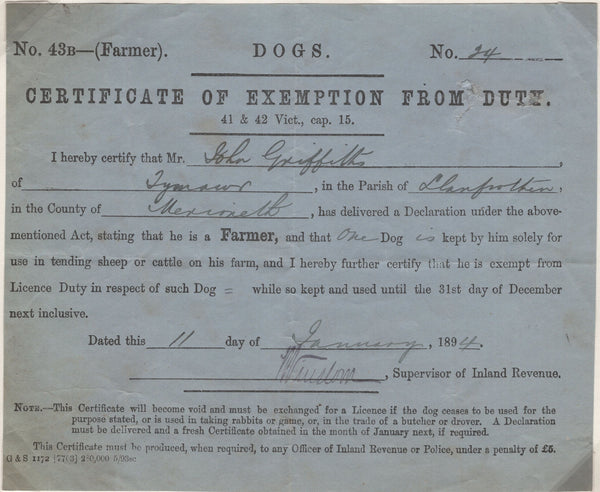 No. 43B—(Farmer). DOGS. No. 24
CERTIFICATE OF EXEMPTION FROM DUTY.
41 & 42 Vict., cap. 15.
I hereby certify that Mr. John Griffiths,
of Tymawr, in the Parish of Llanfrothen,
in the County of Merioneth, has delivered a Declaration under the above-
mentioned Act, stating that he is a Farmer, and that One Dog is kept by him solely for
use in tending sheep or cattle on his farm, and I hereby further certify that he is exempt from
Licence Duty in respect of such Dog = while so kept and used until the 31st day of December
next inclusive.
Dated this 11 day of January, 1894.
, Supervisor of Inland Revenue.
NOTE.—This Certificate will become void and must be exchanged for a Licence if the dog ceases to be used for the
purpose stated, or is used in taking rabbits or game, or, in the trade of a butcher or drover. A Declaration
must be delivered and a fresh Certificate obtained in the month of January next, if required.
This Certificate must be produced, when required, to any Officer of Inland Revenue or Police, under a penalty of £5.
G & S 1172 [77(3] 250,000 5/93sc